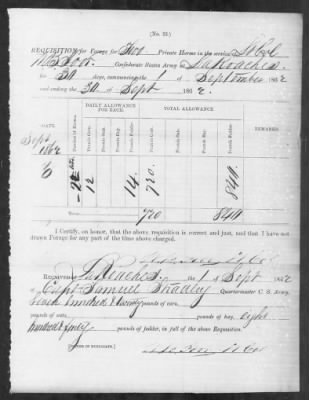 (No. 33.)
REQUISITION for Forage for Two Private Horses in the service Lt Col
Confederate States Army at LaRoaches
for 30 days, commencing the 1 of September 1862
and ending the 30 of Sept 1862.
DAILY ALLOWANCE FOR EACH.
TOTAL ALLOWANCE.
REMARKS.
Number of Horses.
Pounds Corn.
Pounds Oats.
Pounds Hay.
Pounds Fodder.
Pounds Corn.
Pounds Oats.
Pounds Hay.
Pounds Fodder.
Sept
1862
2 12 14 720. 840.
720 840
I Certify, on honor, that the above requisition is correct and just, and that I have not
drawn Forage for any part of the time above charged.
RECEIVED at LaRoaches the 1 of Sept 1862
of Capt Samuel Quartermaster C. S. Army,
seven hundred & twenty pounds of corn,
pounds of oats, pounds of hay, eight
hundred & forty pounds of fodder, in full of the above Requisition.
[SIGNED IN DUPLICATE.]